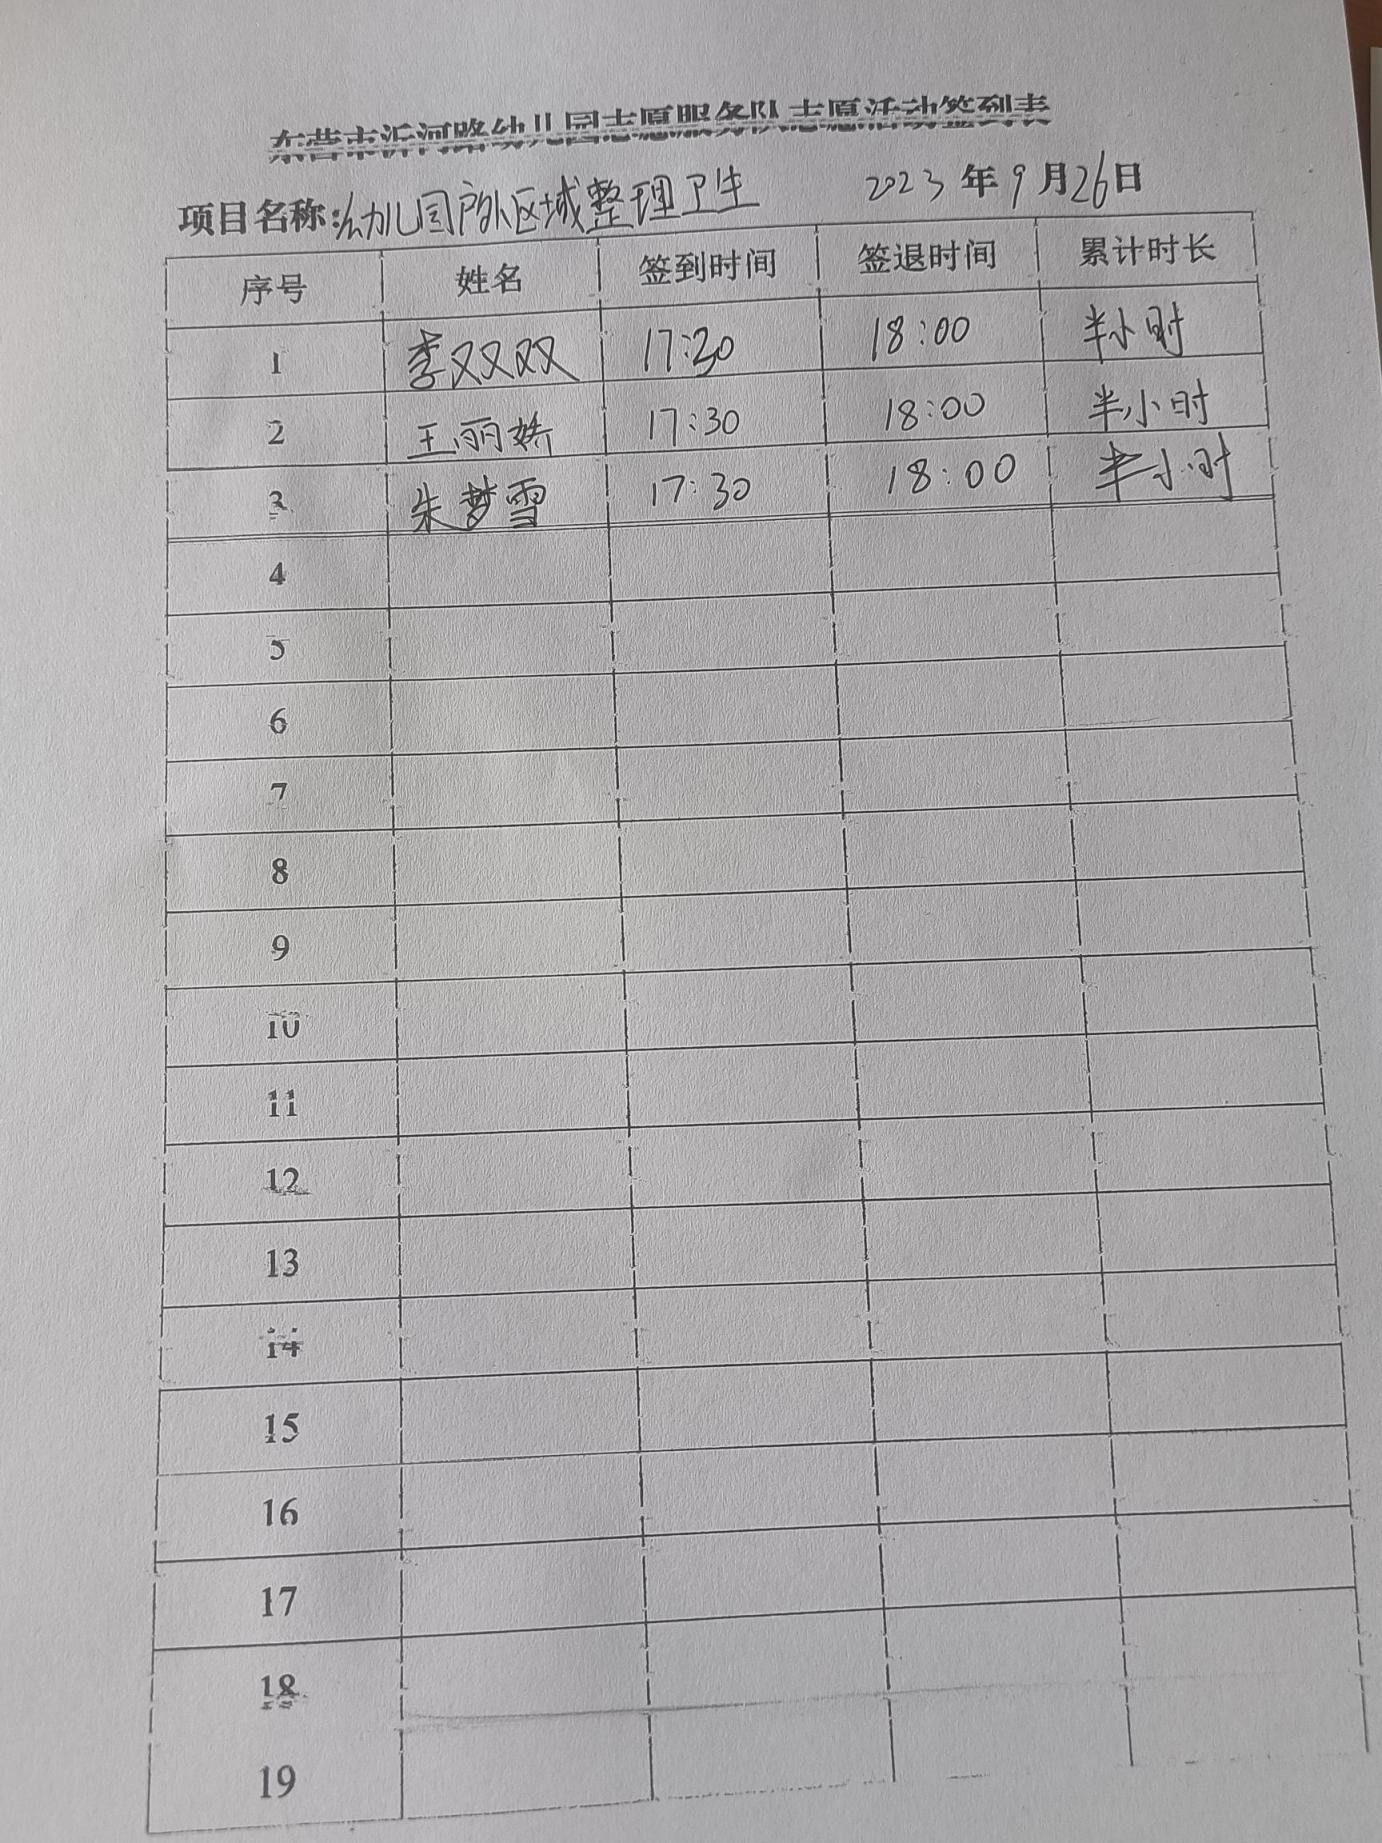 东营市沂河路幼儿园志愿服务队志愿活动签到表
项目名称:幼儿园户外区域整理卫生 2023年9月26日
序号 姓名 签到时间 签退时间 累计时长
1 李双双 17:30 18:00 半小时
2 王丽娇 17:30 18:00 半小时
3 朱梦雪 17:30 18:00 半小时
4
5
6
7
8
9
10
11
12
13
14
15
16
17
18
19